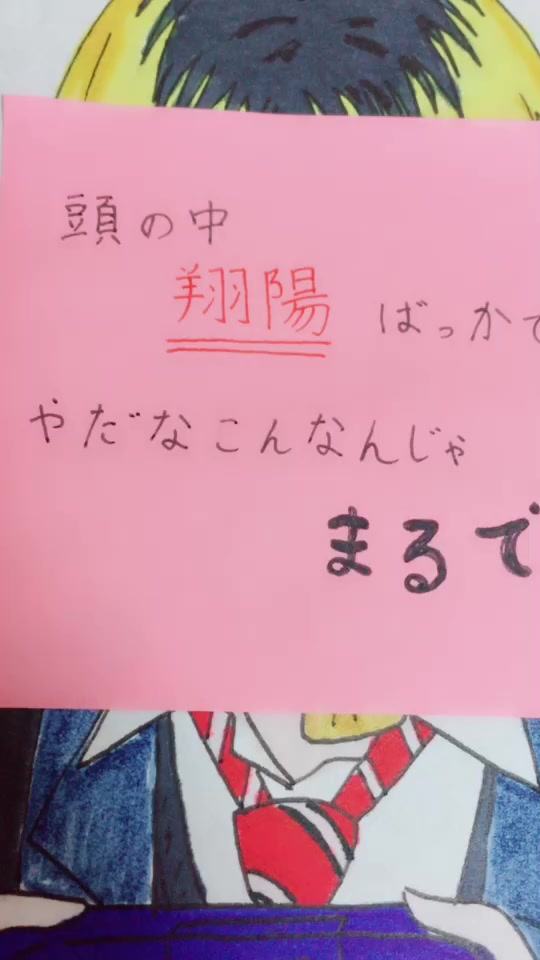 頭の中
翔陽 ばっかで
やだなこんなんじゃ
まるで